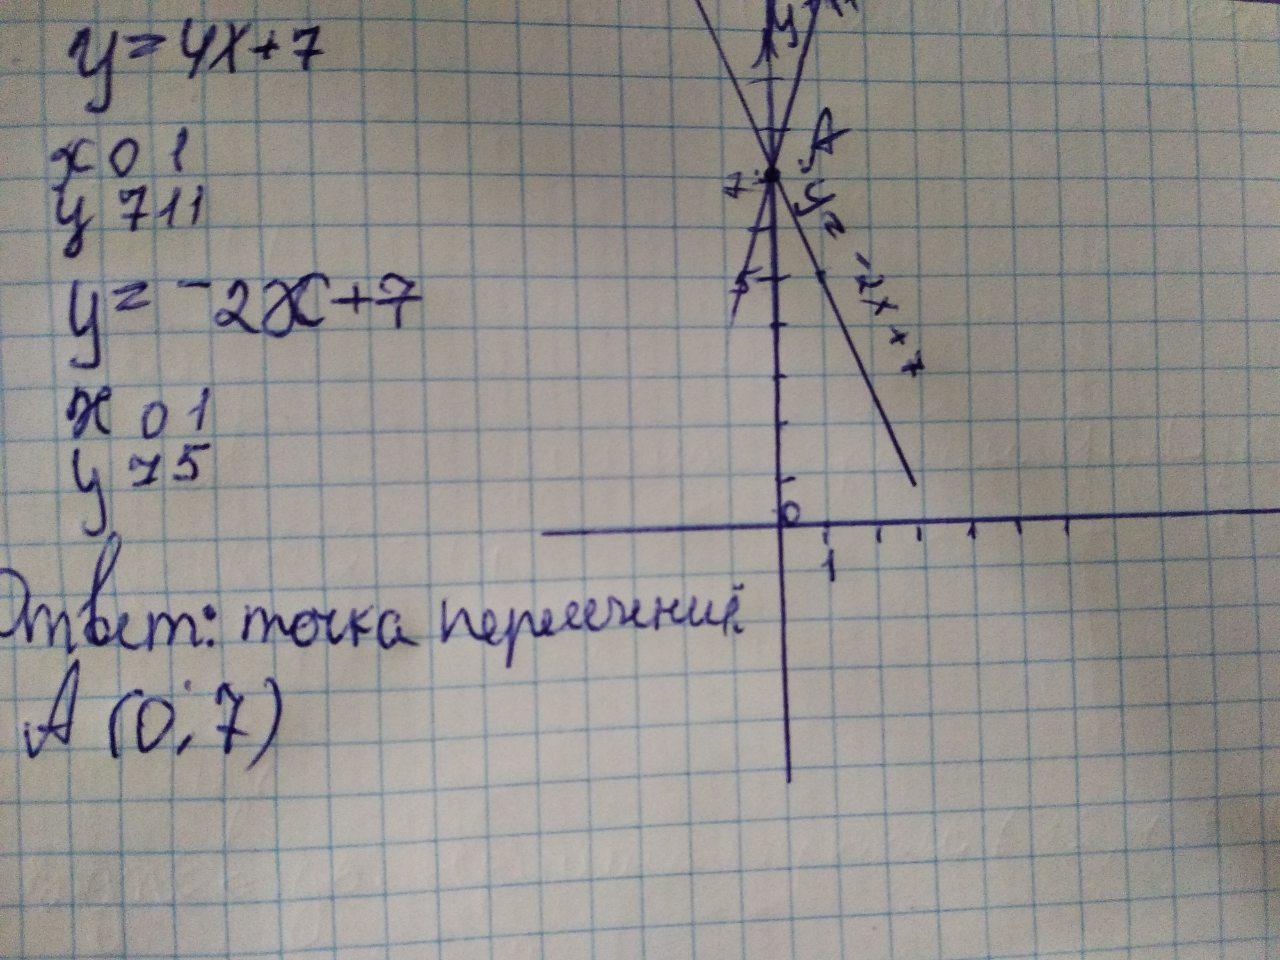 y = 4x + 7
x 0 1
y 7 11
y = -2x + 7
x 0 1
y 7 5
Ответ: точка пересечения
A (0; 7)
y
A
7
y = -2x + 7
5
0
1